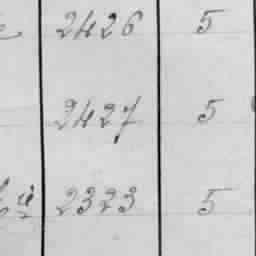 2426 5
2427 5
2323 5